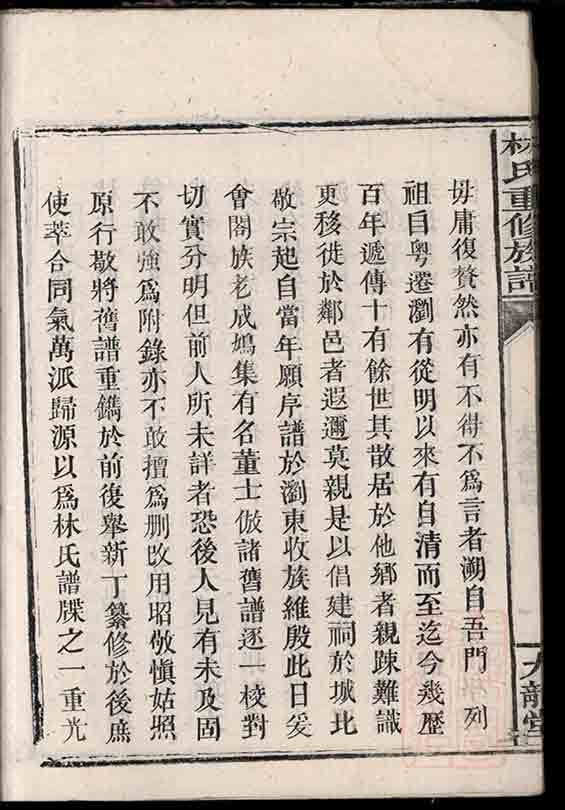 林氏重修族譜
毋庸復贅然亦有不得不爲言者溯自吾門列
祖自粤遷瀏有從明以來有自清而至迄今幾歷
百年遞傳十有餘世其散居於他鄉者親踈難識
更移徙於鄰邑者遐邇莫親是以倡建祠於城北
敬宗起自當年願序譜於瀏東收族維殷此日爰
會閤族老成鳩集有名董士倣諸舊譜逐一校對
切實分明但前人所未詳者恐後人見有未及固
不敢強爲附錄亦不敢擅爲刪改用昭敬慎姑照
原行敬將舊譜重鐫於前復舉新丁纂修於後庶
使萃合同氣萬派歸源以爲林氏譜牒之一重光
九龍堂